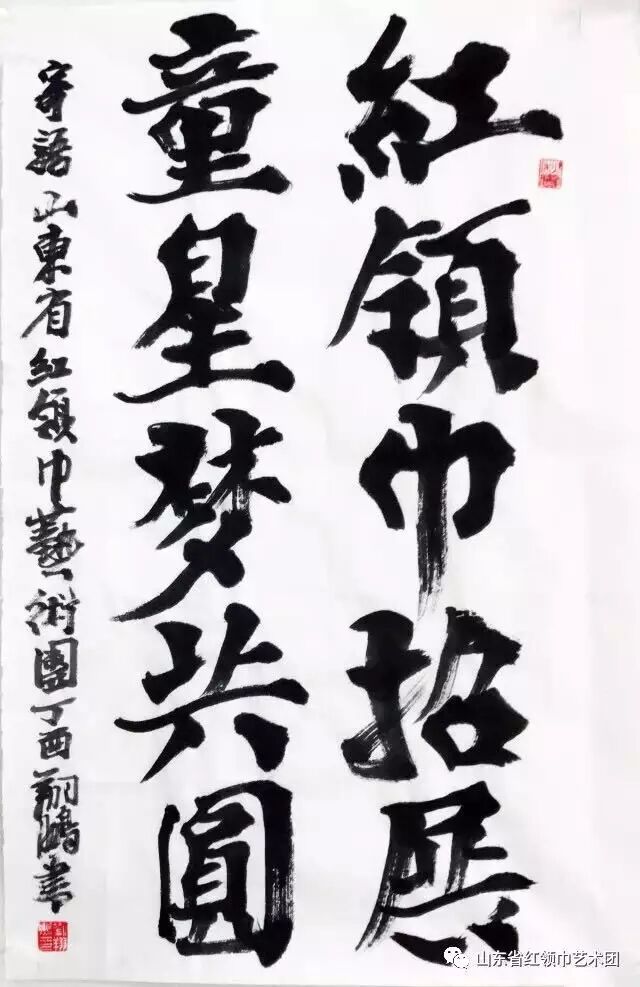 紅領巾招展
童星梦共圓
寄語山東省紅領巾藝術團丁酉翔書
山东省红领巾艺术团